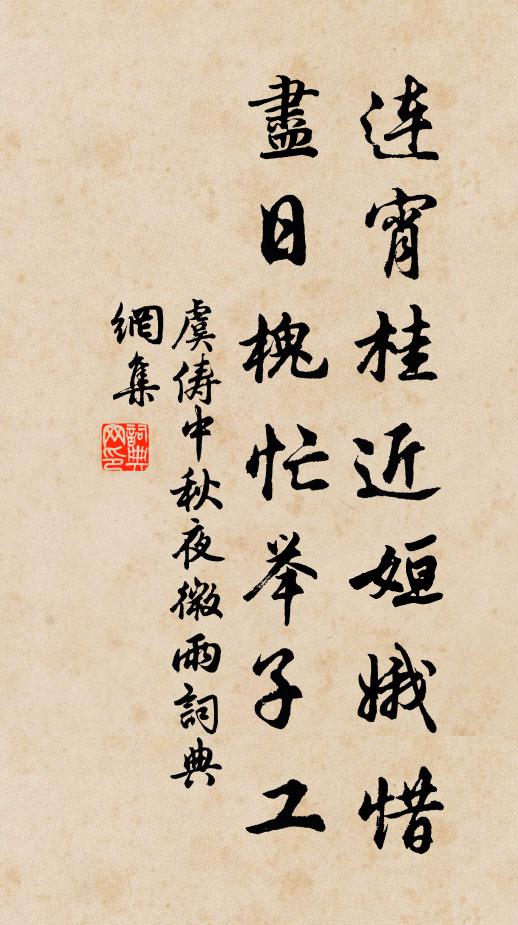 连宵桂近姮娥惜
盡日槐忙举子工
虞俦中秋夜微雨詞典
網集
詞典
网印